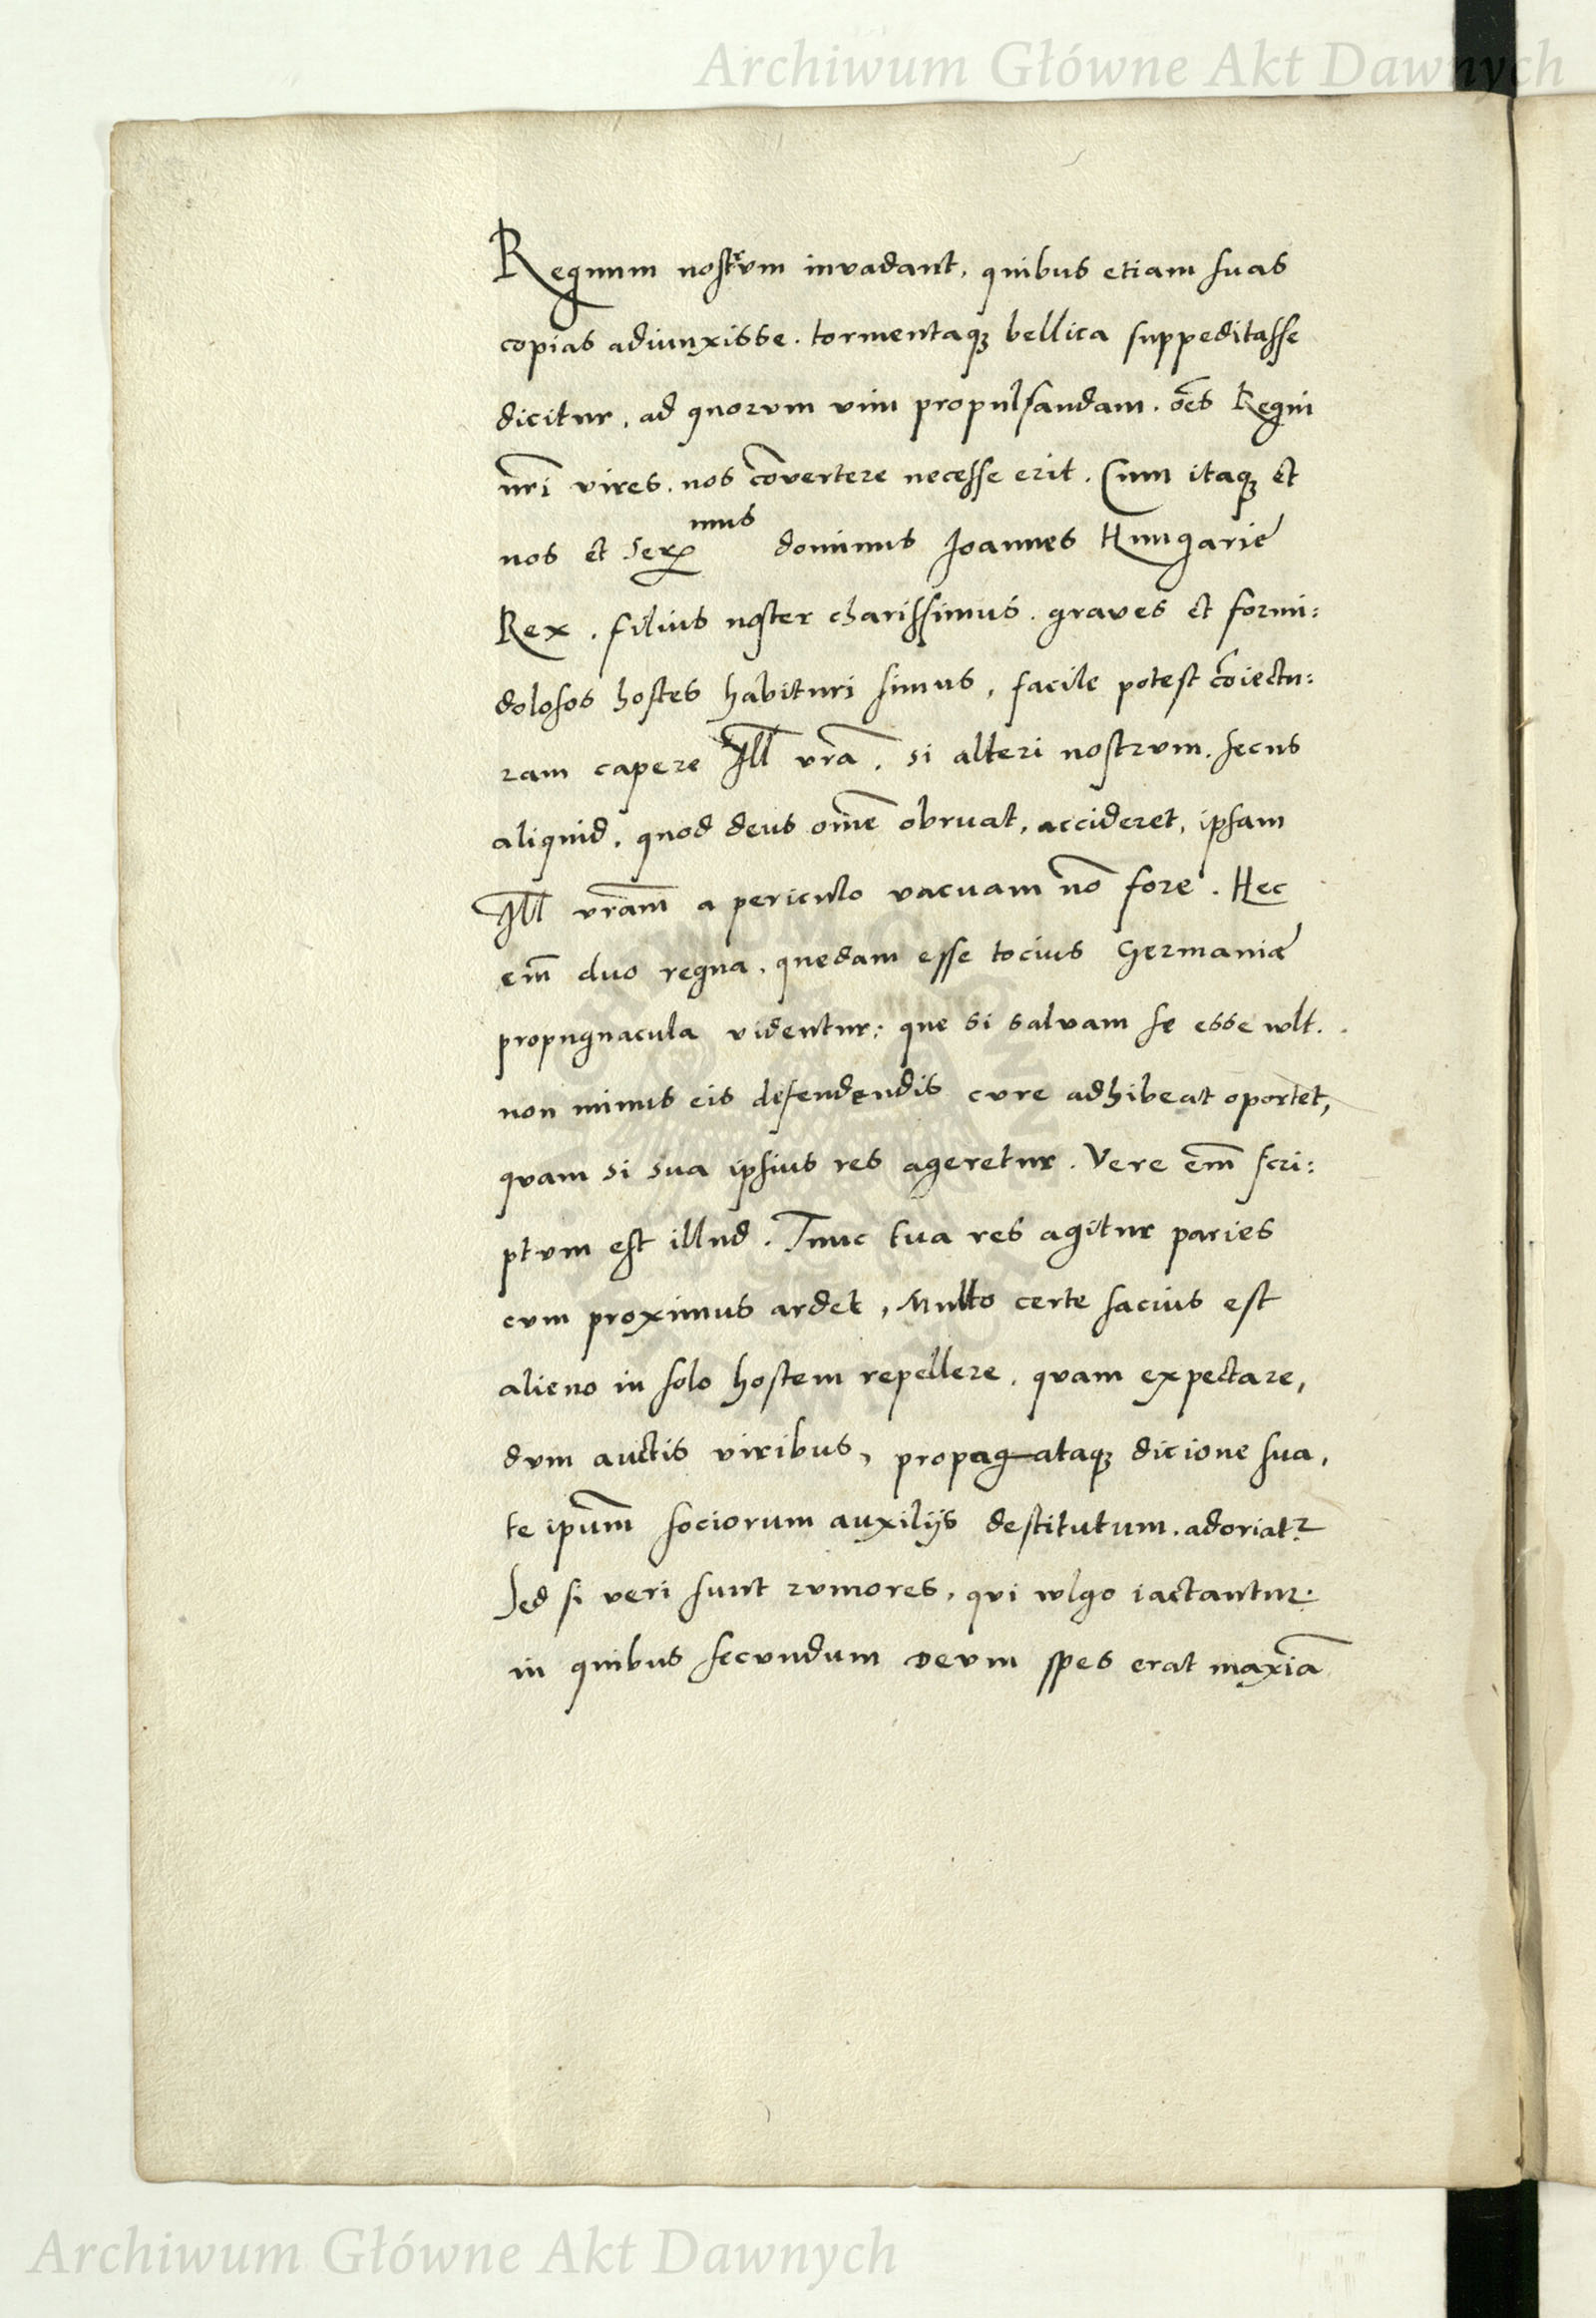 Archiwum Główne Akt Dawnych
Regnum nostrum invadant, quibus etiam suas
copias adiunxisse. tormentaqꝫ bellica suppeditasse
dicitur, ad quorum vim propulsandam. oēs Regni
nr̄i vires. nos cōvertere necesse erit. Cum itaqꝫ et
nos et Serᵐᵘˢ dominus Joannes Hungarie
Rex. filius noster charissimus. graves et formi:
dolosos hostes habituri simus, facile potest cōiectu:
ram capere Ill vr̄a. si alteri nostrum. secus
aliquid. quod deus omē obruat, accideret, ipsam
Ill vr̄am a periculo vacuam nō fore. Hec
em̄ duo regna, quedam esse tocius Germaniæ
propugnacula videntur: que si salvam se esse wlt.
non minus eis defendendis cure adhibeat oportet,
quam si sua ipsius res ageretur. Vere em̄ scri:
ptum est illud. Tunc tua res agitur paries
cum proximus ardet, Multo certe sacius est
alieno in solo hostem repellere, quam expectare,
dum auctis viribus, propagataqꝫ dicione sua,
te ipūm sociorum auxilijs destitutum. adoriatꝛ
Sed si veri sunt rumores, qui wlgo iactantur:
in quibus secundum deum spes erat maxīa
Archiwum Główne Akt Dawnych